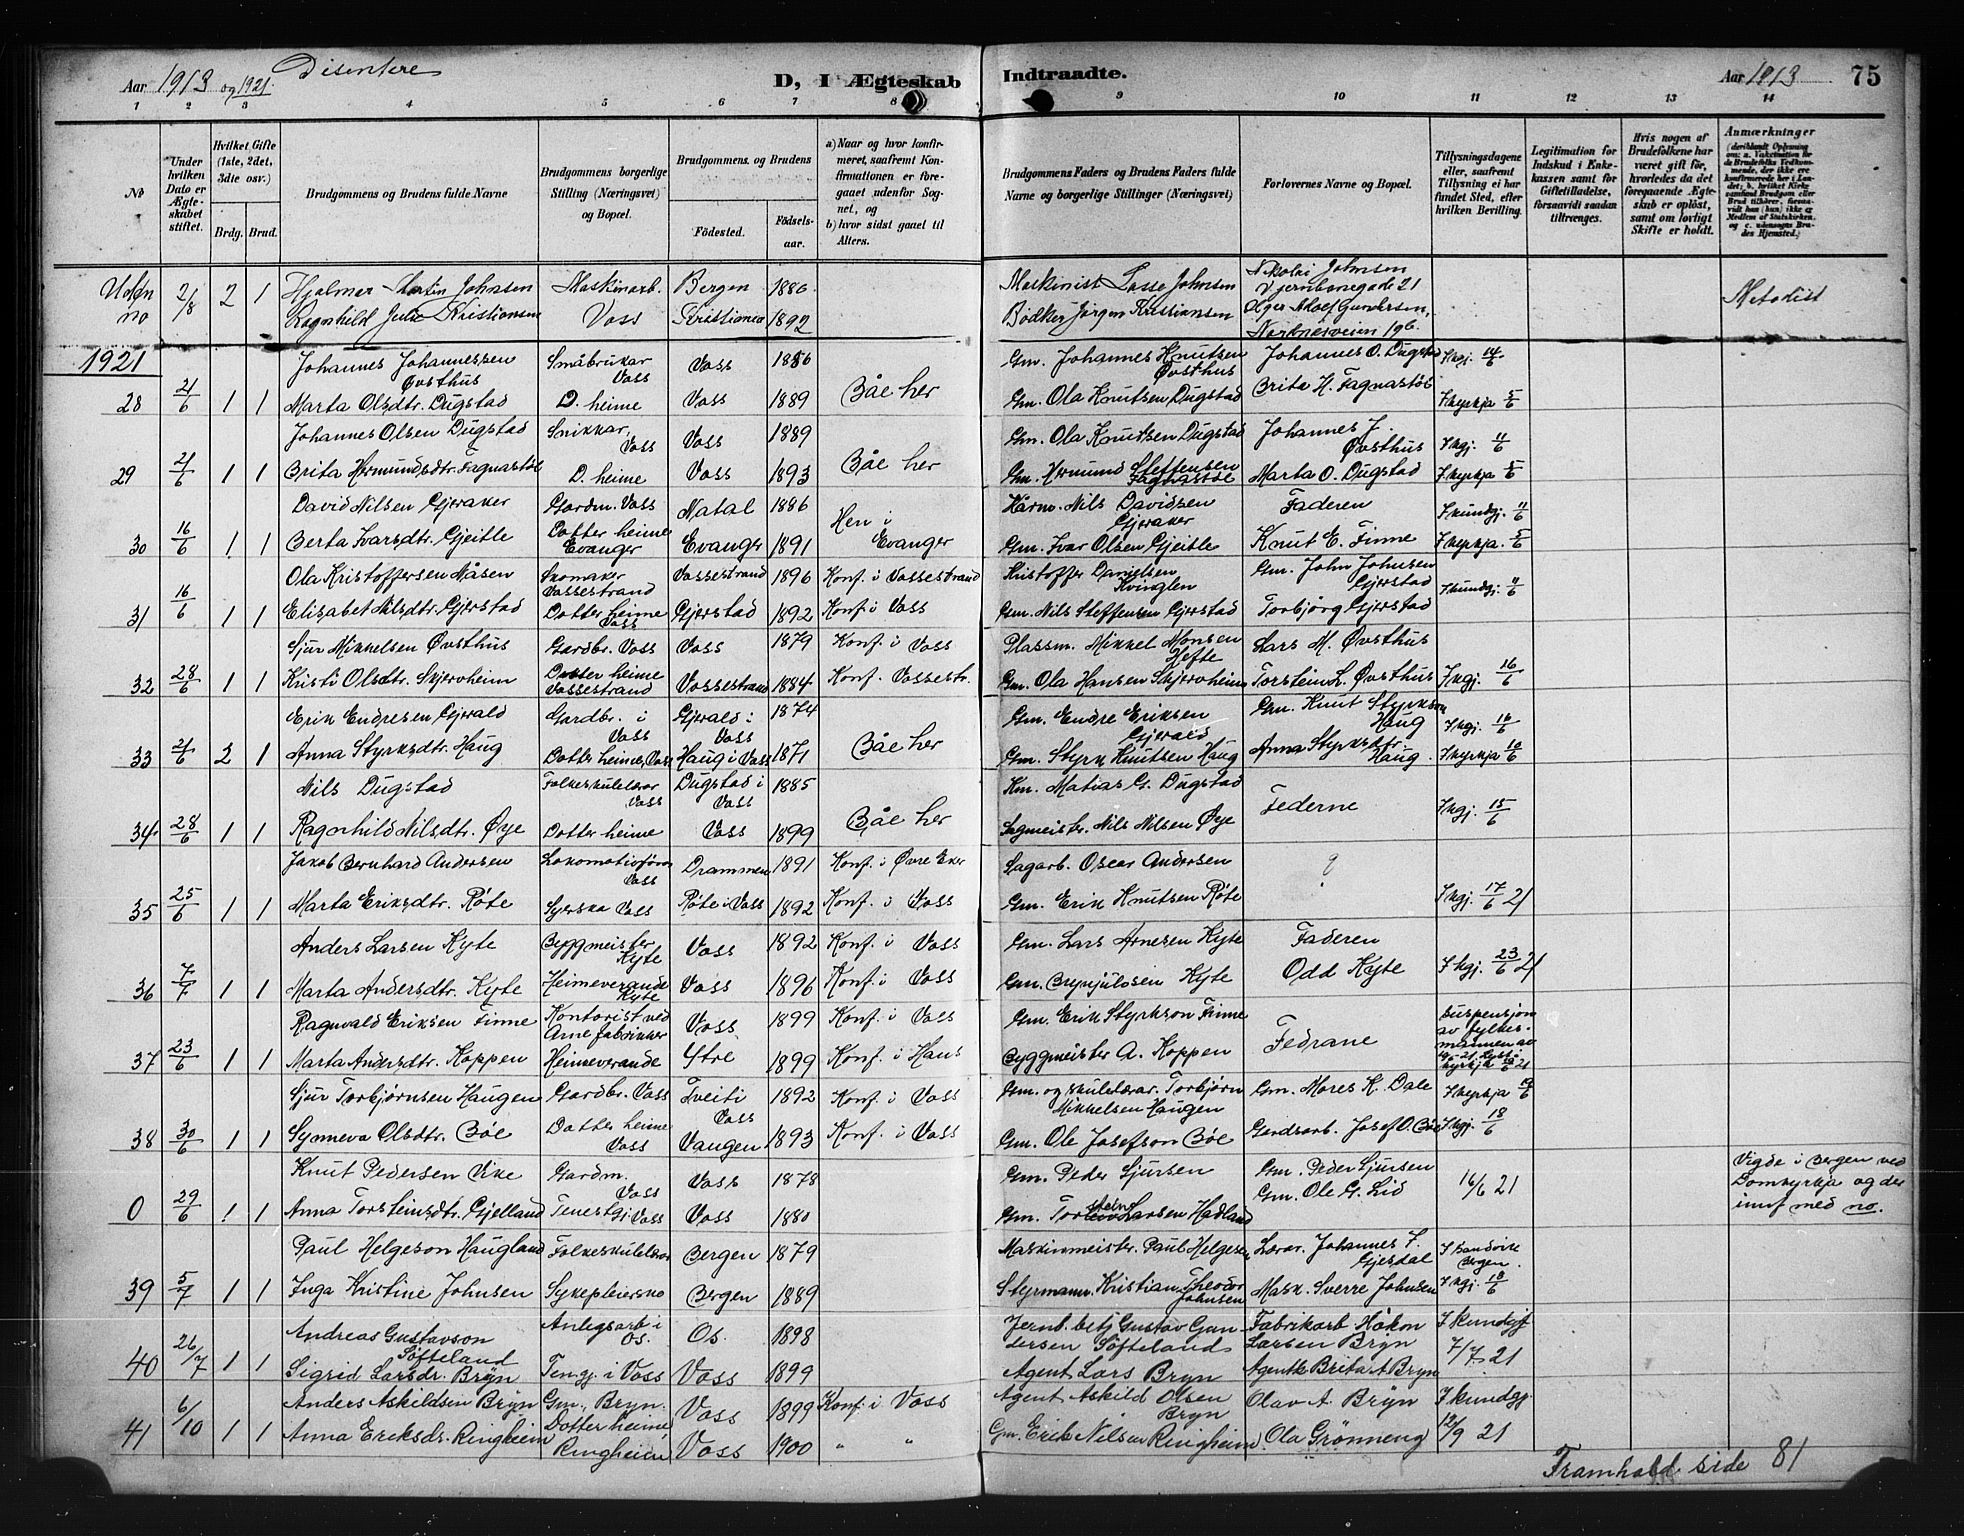 Aar 1913 og 1921. Disentere D, I Ægteskab Indtraadte. Aar 1913 75
1 2 3 4 5 6 7 8 9 10 11 12 13 14
No
Under hvilken Dato er Ægteskabet stiftet.
Hvilket Gifte (1ste, 2det, 3die osv.)
Brdg. Brud.
Brudgommens og Brudens fulde Navne
Brudgommens borgerlige Stilling (Næringsvei) og Bopæl.
Brudgommens og Brudens
Fødested. Fødselsaar.
a) Naar og hvor konfirmeret, saafremt Konfirmationen er foregaaet udenfor Sognet, og
b) hvor sidst gaaet til Alters.
Brudgommens Faders og Brudens Faders fulde Navne og borgerlige Stillinger (Næringsvei)
Forlovernes Navne og Bopæl.
Tillysningsdagene eller, saafremt Tillysning ei har fundet Sted, efter hvilken Bevilling.
Legitimation for Indskud i Enkekassen samt for Giftetilladelse, forsaavidt saadan tiltrænges.
Hvis nogen af Brudefolkene har været gift før, hvorledes da det foregaaende Ægteskab er opløst, samt om lovligt Skifte er holdt.
Anmærkninger
Uden no 2/8 2 1 Hjalmer Martin Johnsen Maskinarb. Bergen 1886 Maskinist Lasse Johnsen Nikolai Johnsen Metodist
Ragnhild Julie Kristiansen Voss Kristiania 1892 Bødker Jørgen Kristiansen
1921
Johannes Johannessen Øvsthus Småbrukar Voss Voss 1886 Gm. Johannes Knutsen Øvsthus Johannes O. Dugstad I kgj. 14/6
28 21/6 1 1 Marta Olsdtr. Dugstad D. heime Voss 1889 Båe her Gm. Ola Knutsen Dugstad Brita H. Fagnastøl I kyrkja 5/6
Johannes Olsen Dugstad Snikkar, Voss Voss 1889 Gm. Ola Knutsen Dugstad Johannes J. Øvsthus I kgj. 11/6
29 21/6 1 1 Brita Hermundsdtr. Fagnastøl D. heime Voss 1893 Båe her Gm. Hermund Steffensen Fagnastøl Marta O. Dugstad I kyrkja 5/6
David Nilsen Gjeraker Gardm. Voss Natal 1886 Kårm. Nils Davidsen Gjeraker Faderen I kundgj. 11/6
30 16/6 1 1 Berta Ivarsdtr. Gjeitle Dotter heime Evanger Evanger 1891 Hen i Evanger Gm. Ivar Olsen Gjeitle Knut E. Finne I kyrkja. 5/6
Ola Kristoffersen Måsen Skomaker Vossestrand Vossestrand 1896 Konf. i Vossestrand Kristoffer Danielsen Kvinglen Gm. John Johnsen Gjerstad I kundgj. 11/6
31 16/6 1 1 Elisabet Nilsdtr. Gjerstad Dotter heime Voss Gjerstad 1892 Konf. i Voss Gm. Nils Steffensen Gjerstad Torbjørg Gjerstad
Sjur Mikkelsen Øvsthus Gardbr. Voss Voss 1879 Konf. i Voss Plassm. Mikkel Monsen Hefte Lars M. Øvsthus
32 28/6 1 1 Kristi Olsdtr. Skjervheim Dotter heime Vossestrand Vossestrand 1884 Konf. Vossestr. Gm. Ola Hansen Skjervheim Torstein L. Øvsthus I kgj. 16/6
Erik Endresen Gjerald Gardbr. i Voss Gjerald i Voss 1874 Gm. Endre Eriksen Gjerald Gm. Knut Styrkson Haug I kgj. 16/6
33 21/6 2 1 Anna Styrksdtr. Haug Dotter heime, Voss Haug i Voss 1871 Båe her Gm. Styrk Knutsen Haug Anna Styrksdtr. Haug I kyrkja
Nils Dugstad Folkeskulelærar Voss Dugstad i Voss 1885 Km. Matias G. Dugstad
34 28/6 1 1 Ragnhild Nilsdtr. Øye Dotter heime Voss 1899 Båe her Sagmeister. Nils Nilsen Øye Federne I kgj. 15/6
Jakob Bernhard Andersen Lokomotivførar Voss Drammen 1891 Konf. i Øvre Eker Sagarb. Oscar Andersen ?
35 25/6 1 1 Marta Eriksdtr. Røte Syerska Voss Røte i Voss 1892 Konf. i Voss Gm. Erik Knutsen Røte I kgj. 17/6 21
Anders Larsen Kyte Byggmeister Kyte Voss 1892 Konf. i Voss Gm. Lars Arnesen Kyte Faderen
36 7/7 1 1 Marta Andersdtr. Kyte Heimeverande Kyte Voss 1896 Konf. i Voss Gm. Brynjulvsen Kyte Odd Kyte I kgj. 23/6 21
Ragnvald Eriksen Finne Kontorist ved Arne fabrikker Voss 1899 Konf. i Voss Gm. Erik Styrkson Finne Suspensjon av fylkesmannen av
37 23/6 1 1 Marta Andersdtr. Koppen Heimeverande Ytre 1899 Konf. i Haus Byggmeister A. Koppen Fedrane
Sjur Torbjørnsen Haugen Gardbr. Voss Tveiti Voss 1892 Konf. i Voss Gm. og skulelærar. Torbjørn Mikkelsen Haugen Gm. Mores K. Dale I kyrkja
38 30/6 1 1 Synneva Olsdtr. Bøe Dotter heime Voss Vangen 1893 Konf. i Voss Gm. Ole Josefson Bøe Gardsarb. Josef O. Bøe I kgj. 18/6
Knut Pedersen Vike Gardm. Voss Voss 1878 Gm. Peder Sjursen Gm. Peder Sjursen Vigde i Bergen ved Domkyrkja og der innf med no.
0 29/6 1 1 Anna Torsteinsdtr. Gjelland Voss Voss 1880 Gm. Torstein Larsen Hadland Gm. Ole G. Lid 16/6 21
Paul Helgeson Haugland Folkeskulelærar Bergen 1879 Maskinmeister. Paul Helgesen Lærar. Johannes F. Gjerdal I Sandvike Bergen.
39 5/7 1 1 Inga Kristine Johnsen Sykepleierska Bergen 1889 Styrmann. Kristian Theodor Johnsen Mask. Sverre Johnsen I kgj. 18/6
Andreas Gustavson Søfteland Anlegsarb i Os. Os. 1898 Jernb. betj Gustav Gundersen Søfteland Fabrikarb Håkon Larsen Bryn I kundgj
40 26/7 1 1 Sigrid Larsdr. Bryn Ten.gj. i Voss Voss 1899 Agent Lars Bryn Agentk Brita A Bryn 7/7 21
Anders Askildsen Bryn Gm., Bryn. Voss 1899 Konf. i Voss Agent Askild Olsen Bryn Olav A. Bryn I kundgj.
41 6/10 1 1 Anna Eriksdr. Ringheim Dotter heime, Ringheim Voss 1900 " " Gm. Erik Nilsen Ringheim. Ola Grønneng 12/9 21
Framhald side 81